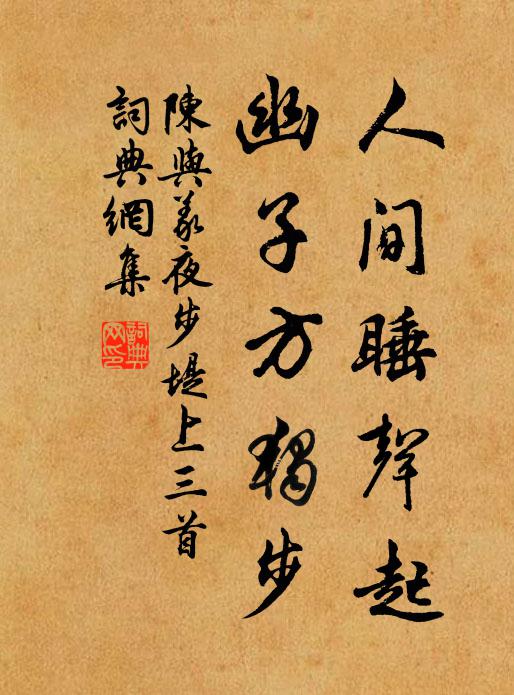 人間睡聲起
幽子方獨步
陳與義夜步堤上三首
詞典網集
詞典網印